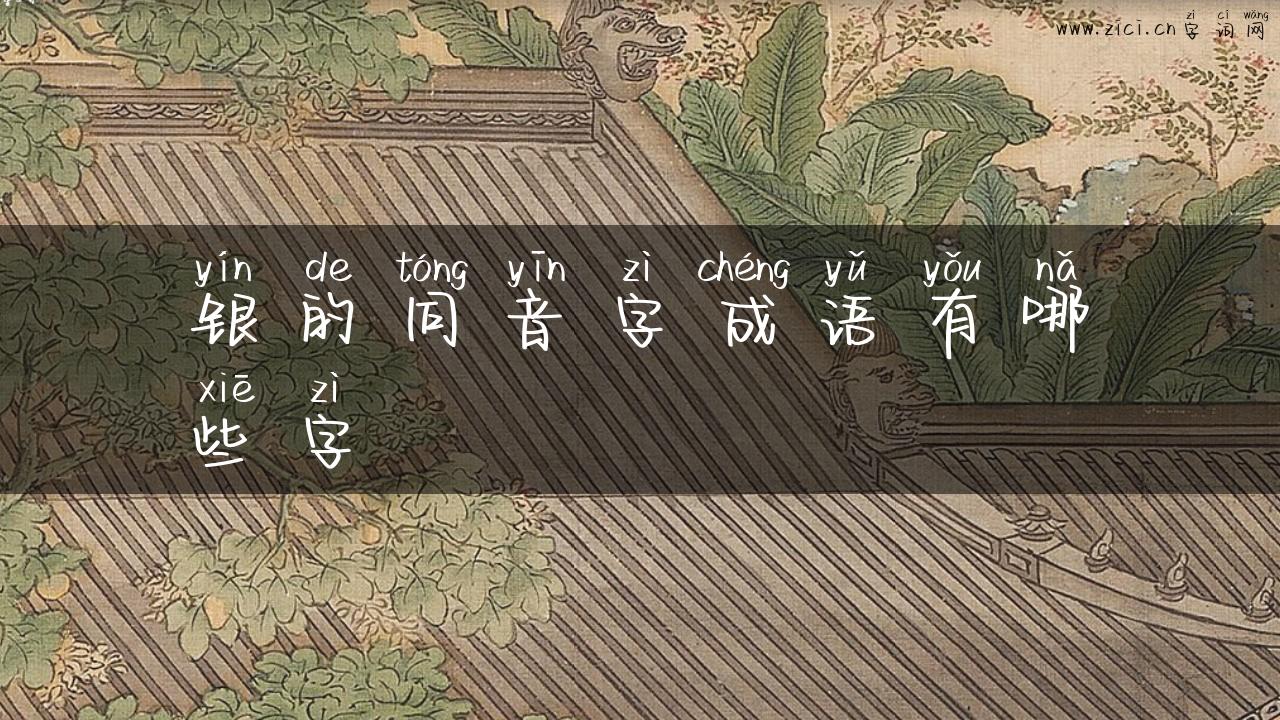 zì cí wǎng
www.zici.cn 字词网
yín de tóng yīn zì chéng yǔ yǒu nǎ
银的同音字成语有哪
xiē zì
些字